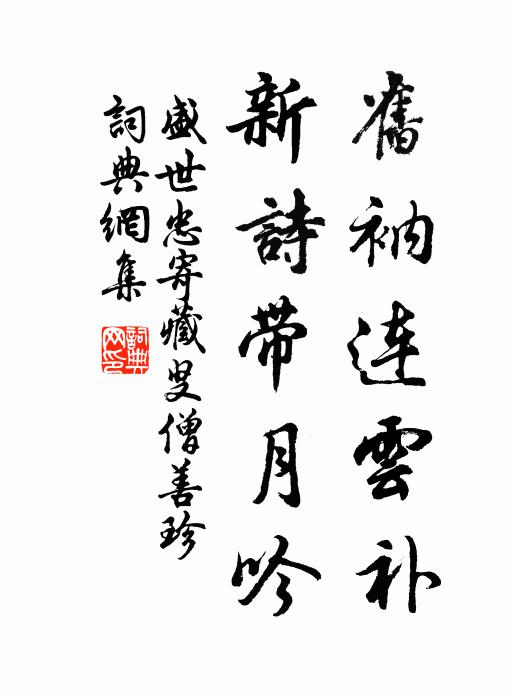 舊衲连雲补
新詩带月吟
盛世忠寄藏叟僧善珍
詞典網集
詞典网印